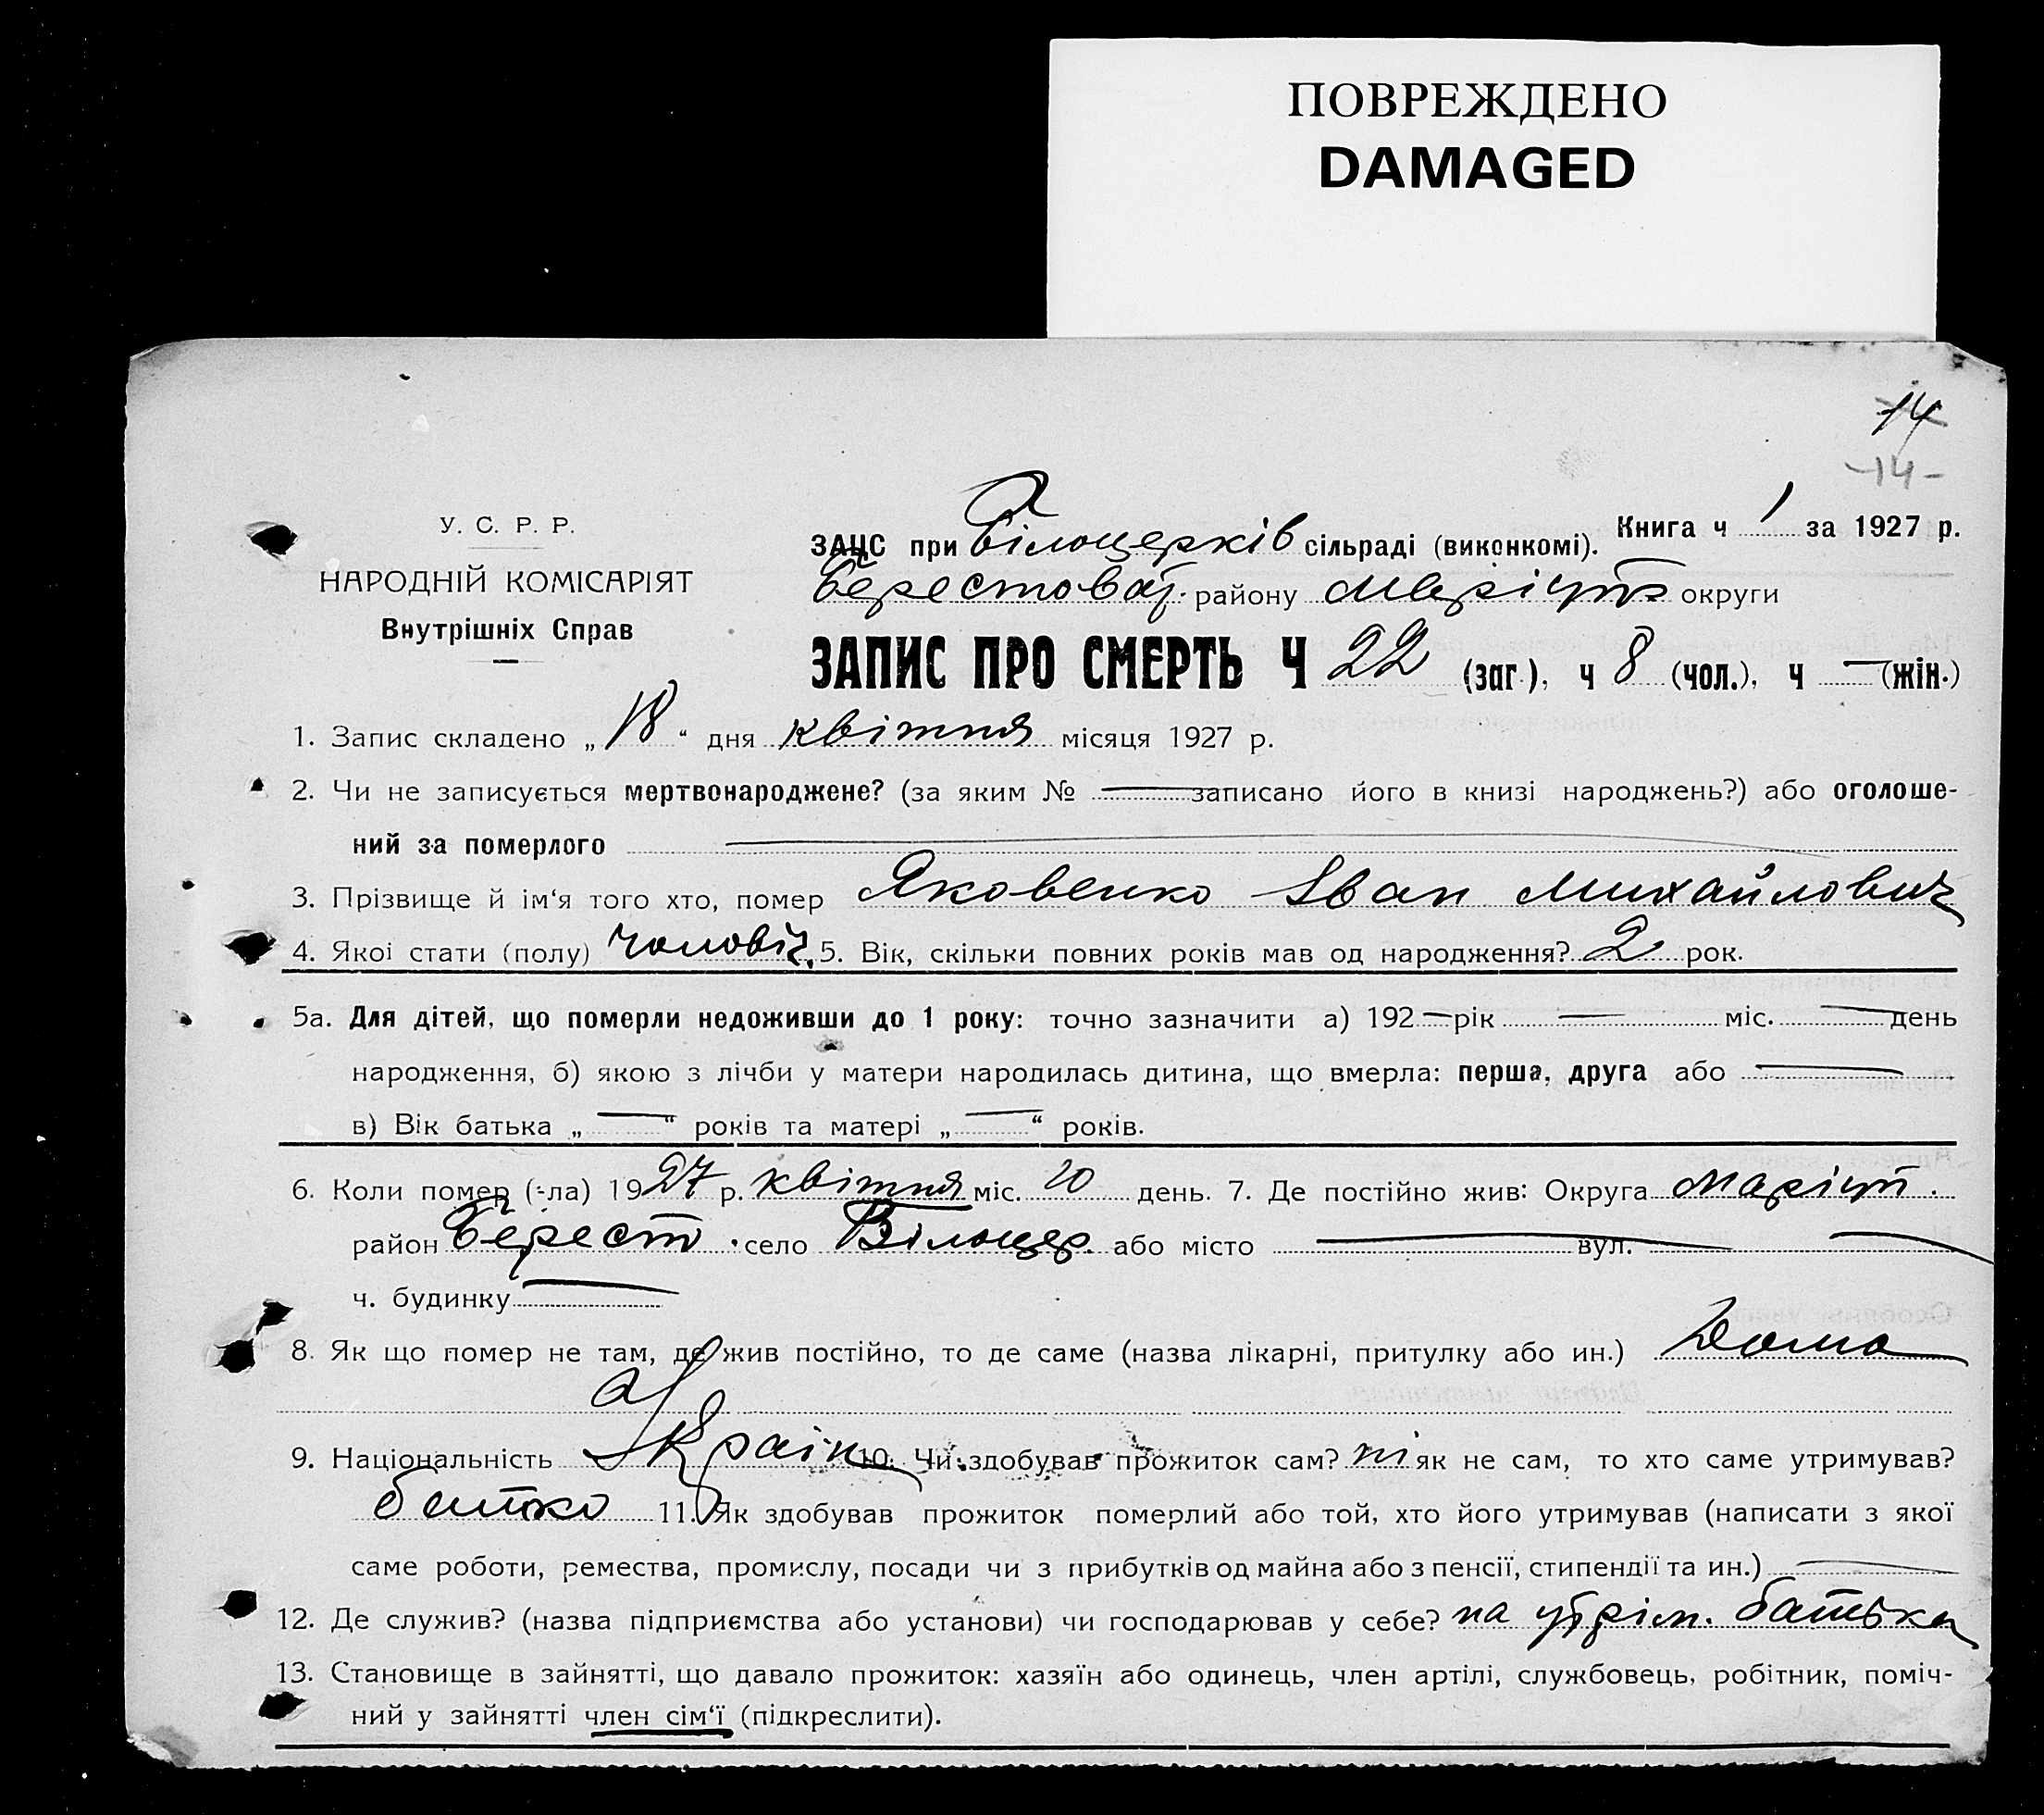 ПОВРЕЖДЕНО
DAMAGED
14
-14-
У. С. Р. Р.
НАРОДНІЙ КОМІСАРІЯТ
Внутрішніх Справ
Книга ч 1 за 1927 р.
ЗАЦС при Білоцерків сільраді (виконкомі).
Берестоват. району Маріупо округи
ЗАПИС ПРО СМЕРТЬ Ч 22 (заг.), ч 8 (чол.), ч — (жін.)
1. Запис складено „18“ дня квітня місяця 1927 р.
2. Чи не записується мертвонароджене? (за яким № — записано його в книзі народжень?) або оголоше-
ний за померлого —
3. Прізвище й ім‘я того хто, помер Яковенко Іван Михайлович
4. Якої стати (полу) чоловіч. 5. Вік, скільки повних років мав од народження? 2 рок.
5а. Для дітей, що померли недоживши до 1 року: точно зазначити а) 192— рік — міс. — день
народження, б) якою з лічби у матери народилась дитина, що вмерла: перша, друга або —
в) Вік батька „—“ років та матері „—“ років.
6. Коли помер (-ла) 1927 р. квітня міс. 10 день. 7. Де постійно жив: Округа Маріуп.
район Берест. село Білоцер. або місто — вул. —
ч. будинку —
8. Як що помер не там, де жив постійно, то де саме (назва лікарні, притулку або ин.) Дома
9. Національність Україн 10. Чи здобував прожиток сам? ні як не сам, то хто саме утримував?
батько 11. Як здобував прожиток померлий або той, хто його утримував (написати з якої
саме роботи, ремества, промислу, посади чи з прибутків од майна або з пенсії, стипендії та ин.) —
12. Де служив? (назва підприємства або установи) чи господарював у себе? на утрім. батька
13. Становище в зайнятті, що давало прожиток: хазяїн або одинець, член артілі, службовець, робітник, поміч-
ний у зайнятті член сім‘ї (підкреслити).